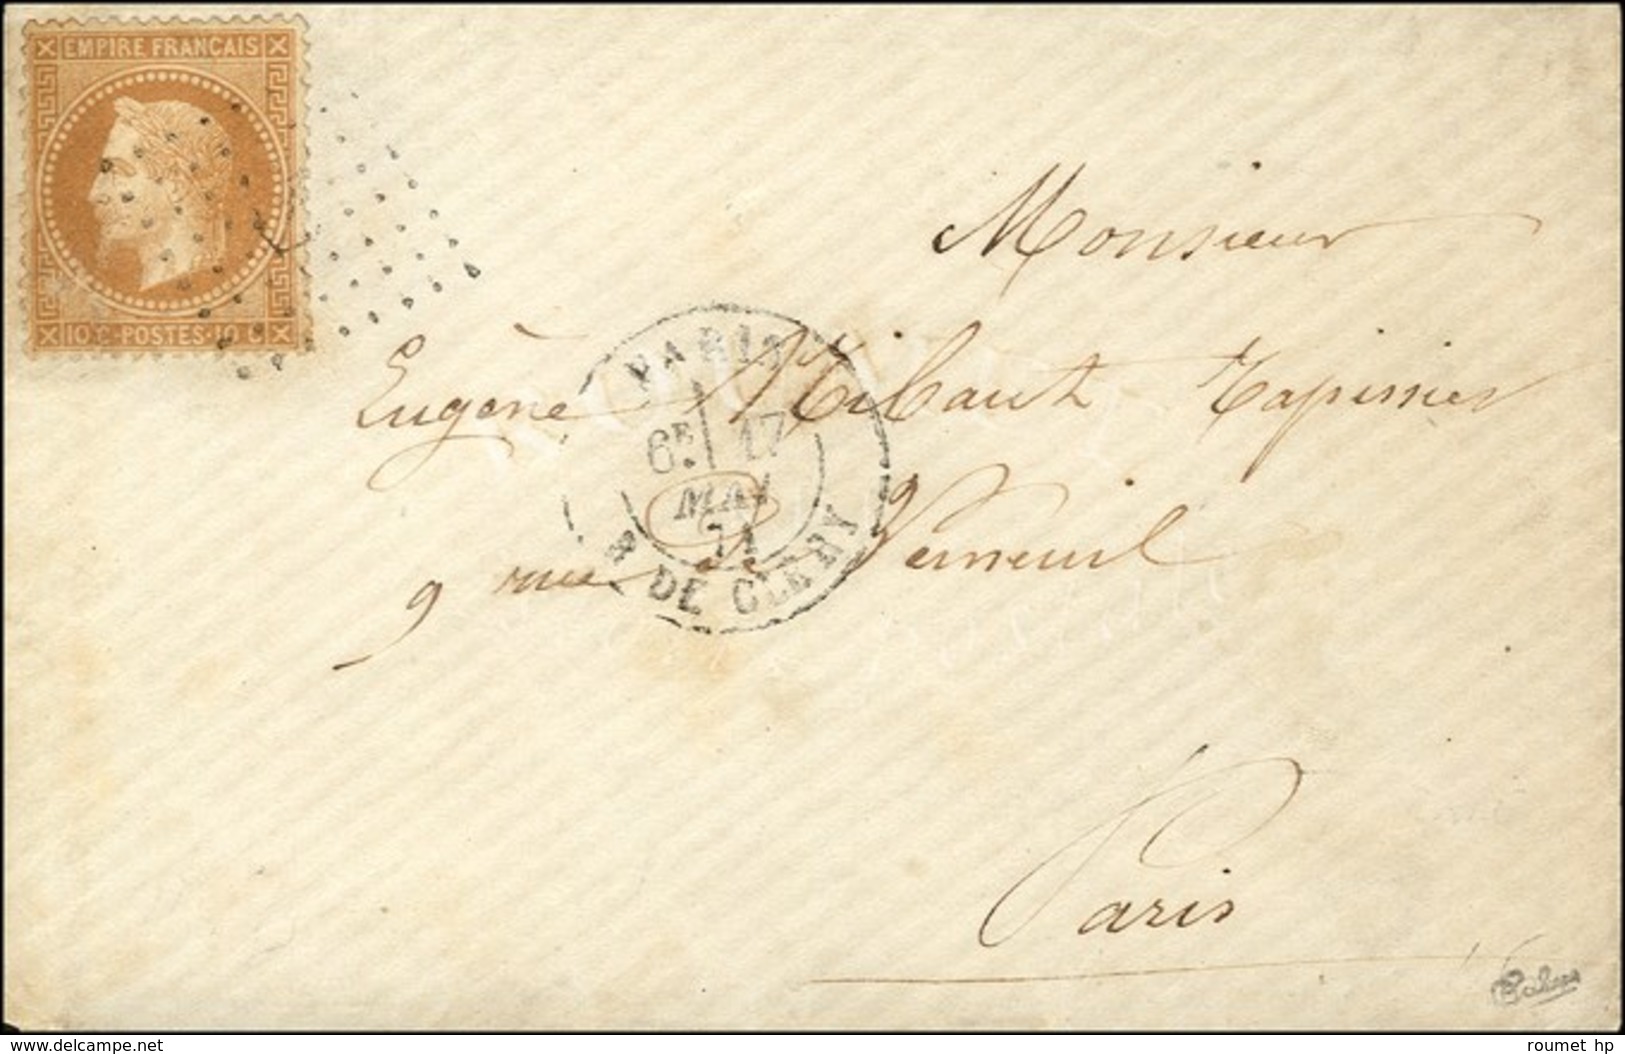 EMPIRE FRANCAIS
10 C·POSTES·10 C
Monsieur
PARIS
Eugène Thibaut Tapissier
6E 17
MAI
71
R. DE CLERY
9 rue de Verneuil
Paris
www.delcampe.net
roumet hp